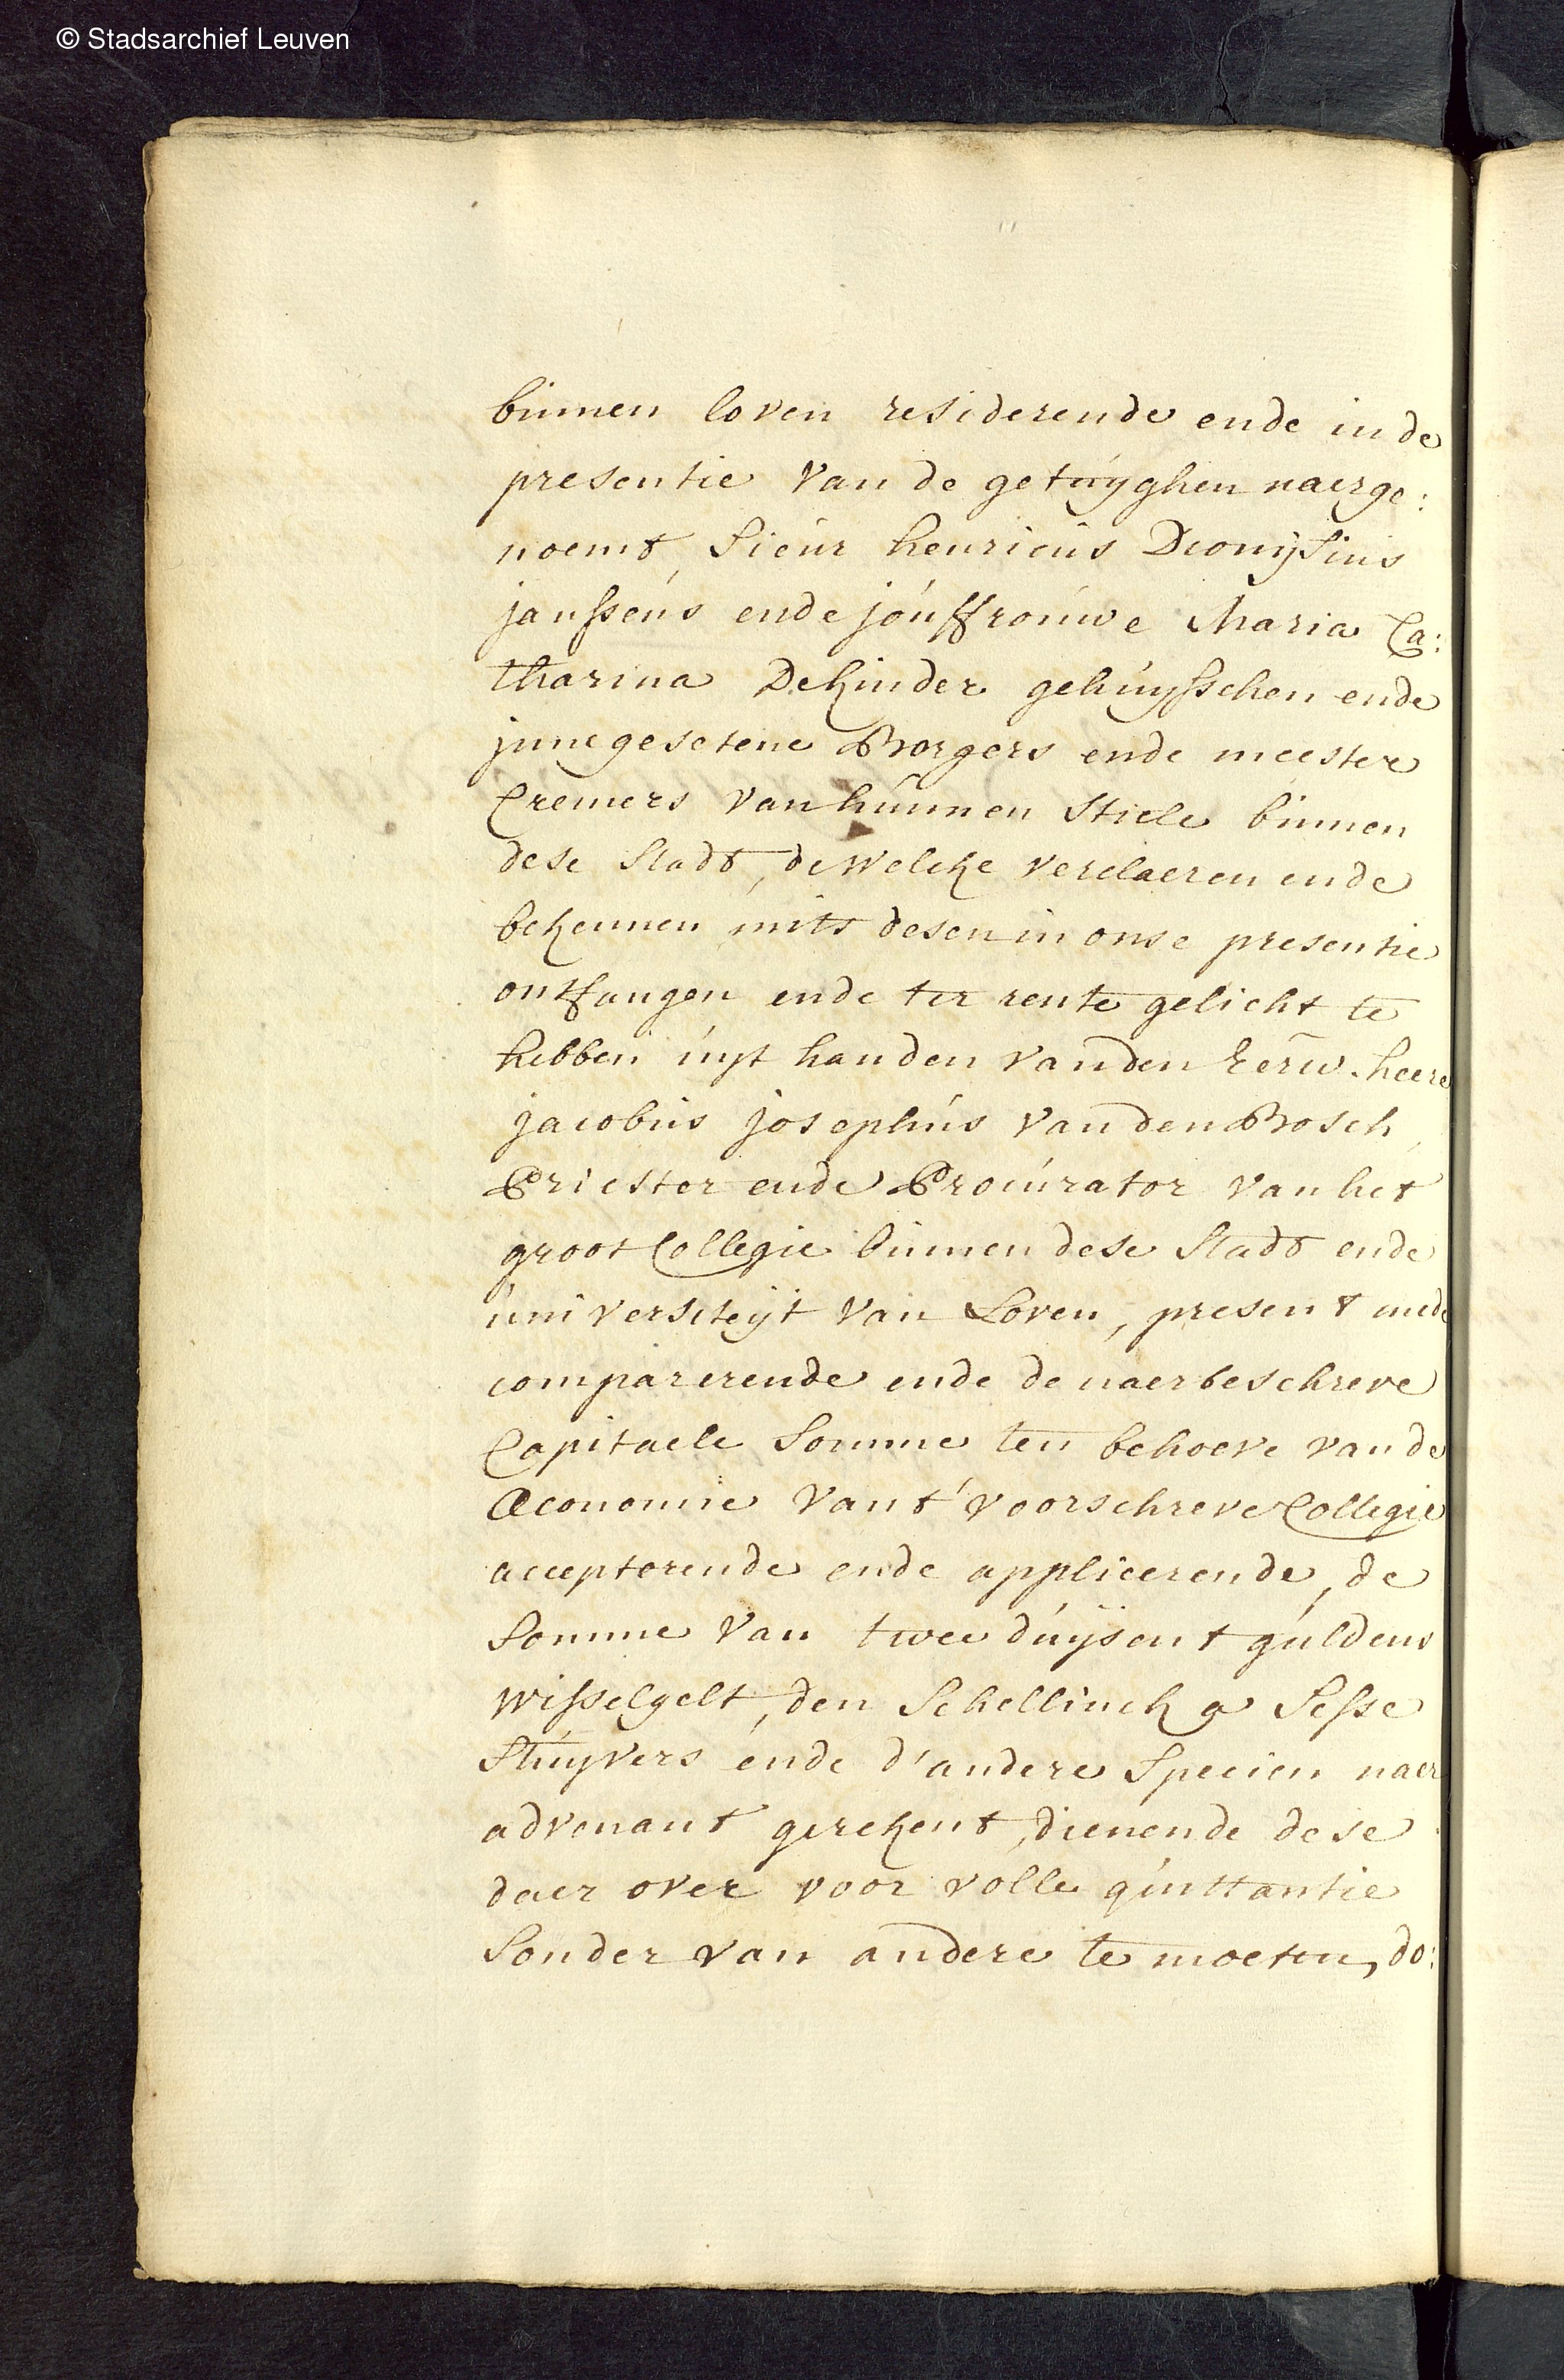 © Stadsarchief Leuven
binnen loven residerende ende in de
presentie van de getuyghen naerge:
noemt, Sieur henricus Dionysius
janssens ende jouffrouwe Maria Ca:
tharina Dekinder gehuysschen ende
innegesetene Borgers ende meester
Cremers van hunnen Stiele binnen
dese Stadt, de welcke verclaeren ende
bekennen mits desen in onse presentie
ontfangen ende ter rente gelicht te
hebben uyt handen van den Eerw. heere
jacobus josephus van den Bosch,
Priester ende Procurator van het
groot Collegie binnen dese Stadt ende
universiteyt van Loven, present mede
comparerende ende de naerbeschreve
Capitaele Somme ten behoeve van de
Œconomie van t' voorschreve Collegie
accepterende ende applicerende, de
Somme van twee duysent guldens
wisselgelt, den Schellinck a Sesse
Stuyvers ende d'andere Specien naer
advenant gerekent, dienende dese
daer over voor volle quittantie
Sonder van andere te moeten, do: